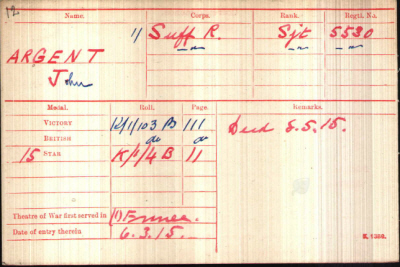 12
Name. Corps. Rank. Regtl. No.
ARGENT 11 Suff R. Sjt 5530
John " " "
Medal. Roll. Page. Remarks.
VICTORY K/1/103 B 111 Died 8.5.15.
BRITISH do do
15 STAR K/1/4 B 11
Theatre of War first served in (1) France.
Date of entry therein 6.3.15.
K. 1380.